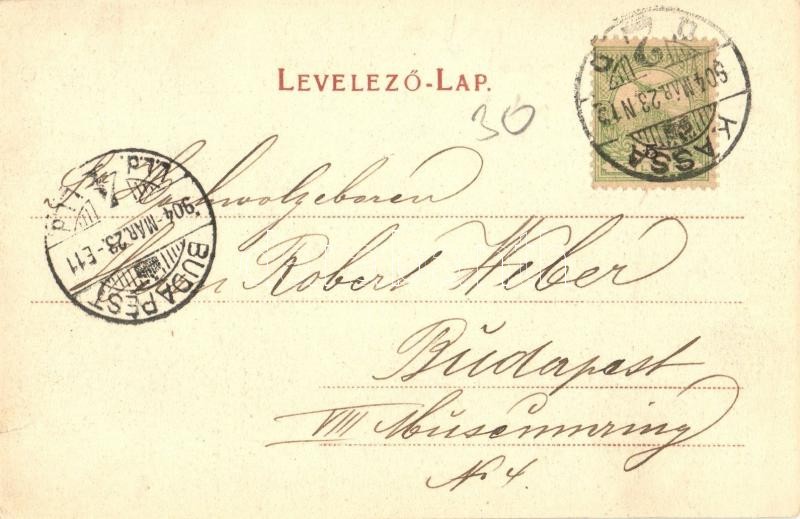 LEVELEZŐ-LAP.
30
KASSA
904 MÁR. 23 N 13
Sr. Hochwolgeboren
Herrn Robert Weber
Budapest
VIII Museumring
No 4.
BUDAPEST
904 MÁR. 23 - E 11